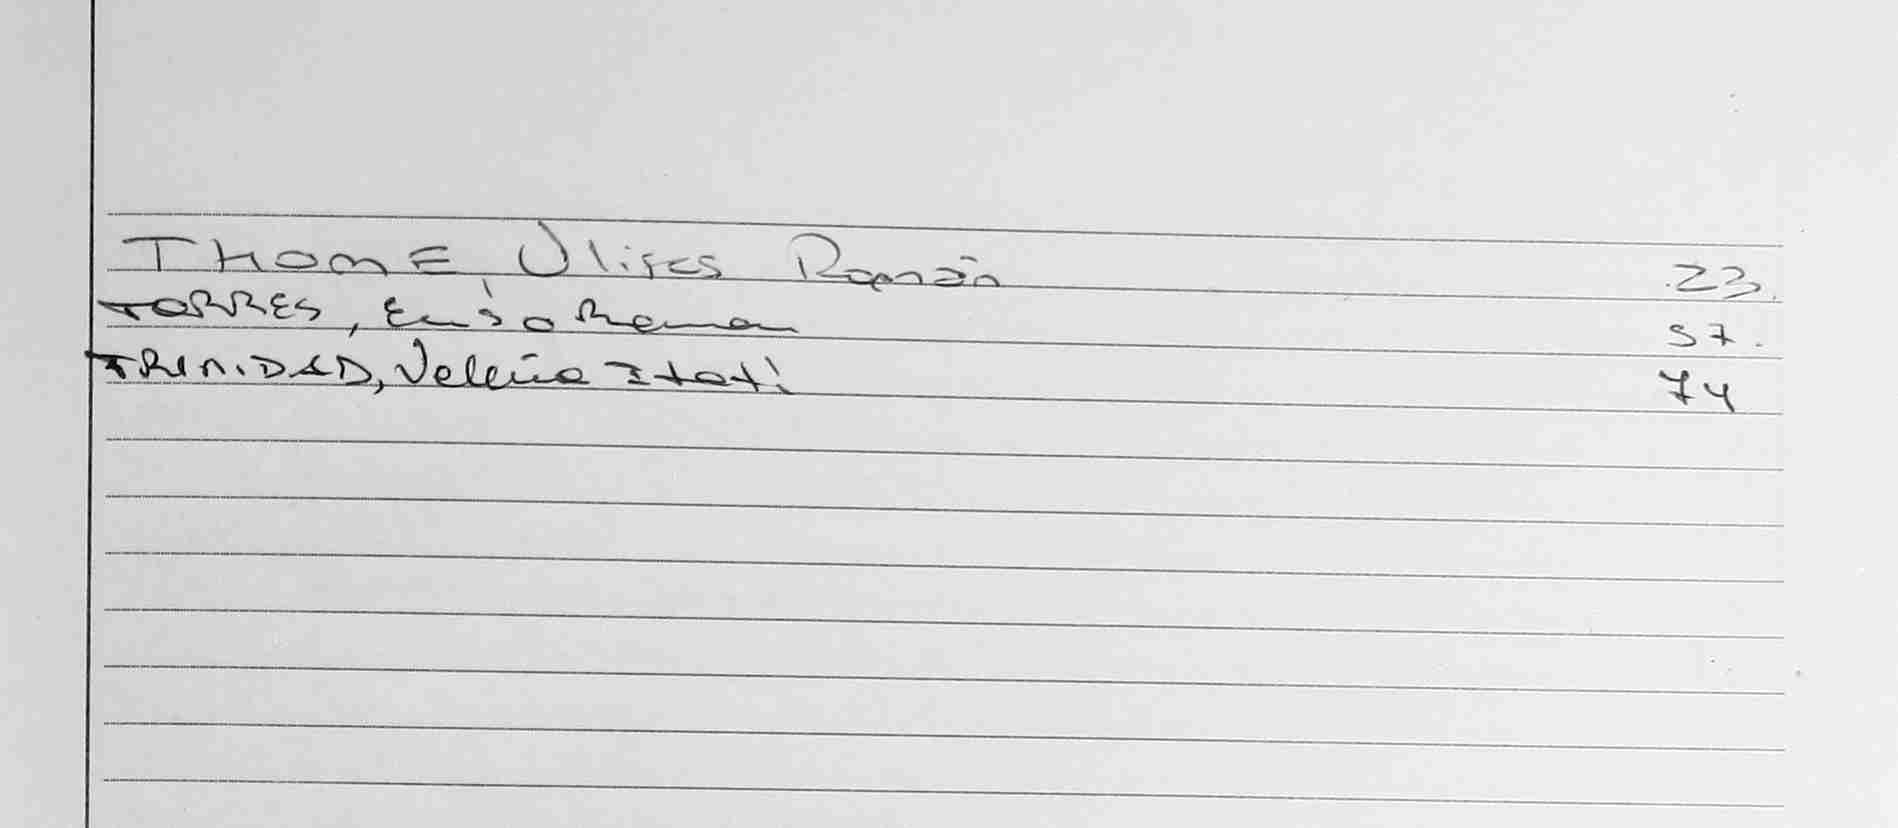 THOME, Ulises Ramón 23.
TORRES, Enso Ramon 57.
TRINIDAD, Valeria Itatí 74